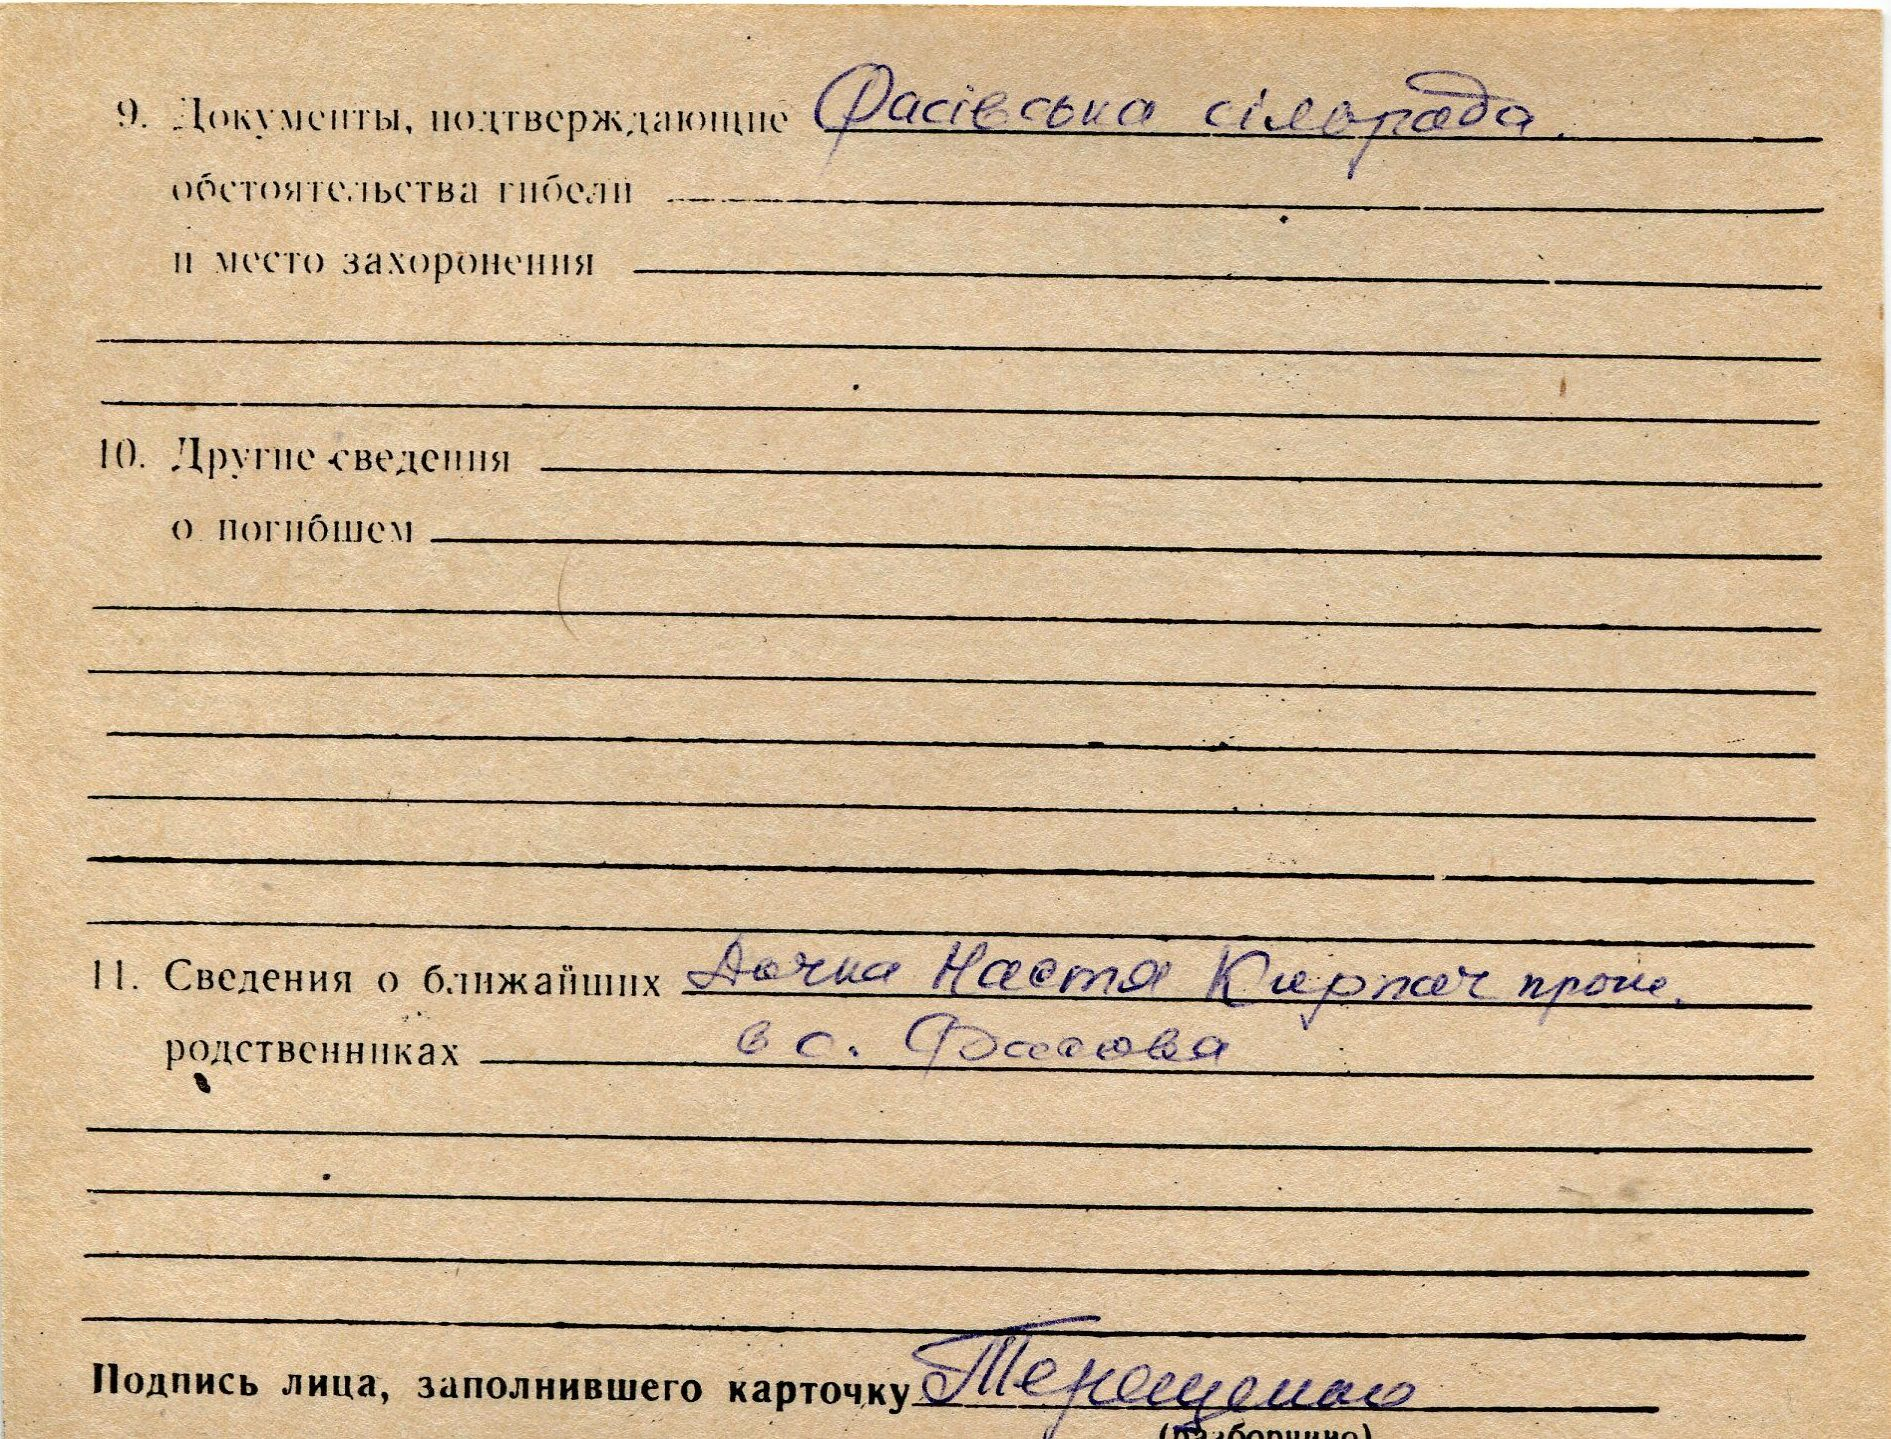 9. Документы, подтверждающие Фасівська сільрада.
обстоятельства гибели
и место захоронения
10. Другие сведения
о погибшем
11. Сведения о ближайших Дочка Настя Кирпач прож.
родственниках в с. Фасова
Подпись лица, заполнившего карточку Терещенко
(разборчиво)